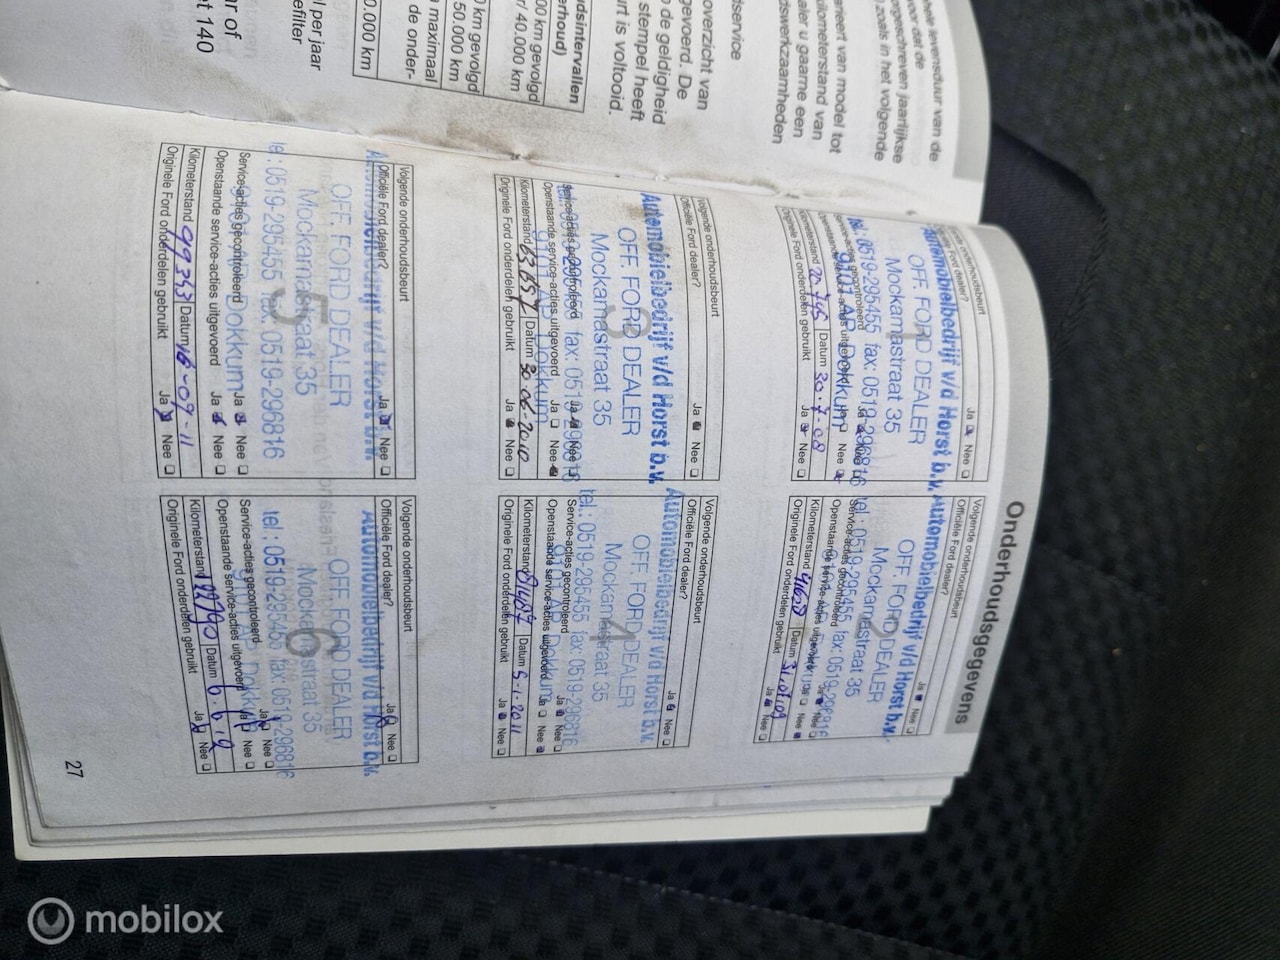 hele levensduur van de
voor dat de
orgeschreven jaarlijkse
) zoals in het volgende
arieert van model tot
ilometerstand van
aler u gaarne een
dswerkzaamheden
dservice
overzicht van
gevoerd. De
o de geldigheid
stempel heeft
urt is voltooid.
dsintervallen
erhoud)
00 km gevolgd
r/ 40.000 km
0 km gevolgd
50.000 km
maximaal
de onder-
0.000 km
l per jaar
efilter
ar of
et 140
Onderhoudsgegevens
1
Volgende onderhoudsbeurt
Officiële Ford dealer? Ja Nee
Service-acties gecontroleerd Ja Nee
Openstaande service-acties uitgevoerd Ja Nee
Kilometerstand 20.745 Datum 30-7-08
Originele Ford onderdelen gebruikt Ja Nee
Automobielbedrijf v/d Horst b.v.
OFF. FORD DEALER
Mockamastraat 35
9101 AP Dokkum
tel.: 0519-295455 fax: 0519-296816
2
Volgende onderhoudsbeurt
Officiële Ford dealer? Ja Nee
Service-acties gecontroleerd Ja Nee
Openstaande service-acties uitgevoerd Ja Nee
Kilometerstand Datum 31.07.09
Originele Ford onderdelen gebruikt Ja Nee
Automobielbedrijf v/d Horst b.v.
OFF. FORD DEALER
Mockamastraat 35
tel.: 0519-295455 fax: 0519-296816
3
Volgende onderhoudsbeurt
Officiële Ford dealer? Ja Nee
Service-acties gecontroleerd Ja Nee
Openstaande service-acties uitgevoerd Ja Nee
Kilometerstand Datum 30 06-2010
Originele Ford onderdelen gebruikt Ja Nee
Automobielbedrijf v/d Horst b.v.
OFF. FORD DEALER
Mockamastraat 35
9101 AP Dokkum
tel.: 0519-295455 fax: 0519-296816
4
Volgende onderhoudsbeurt
Officiële Ford dealer? Ja Nee
Service-acties gecontroleerd Ja Nee
Openstaande service-acties uitgevoerd Ja Nee
Kilometerstand 81487 Datum 5-1-2011
Originele Ford onderdelen gebruikt Ja Nee
Automobielbedrijf v/d Horst b.v.
OFF. FORD DEALER
Mockamastraat 35
Dokkum
tel.: 0519-295455 fax: 0519-296816
5
Volgende onderhoudsbeurt
Officiële Ford dealer? Ja Nee
Service-acties gecontroleerd Ja Nee
Openstaande service-acties uitgevoerd Ja Nee
Kilometerstand 99353 Datum 16-09-11
Originele Ford onderdelen gebruikt Ja Nee
Automobielbedrijf v/d Horst b.v.
OFF. FORD DEALER
Mockamastraat 35
Dokkum
tel.: 0519-295455 fax: 0519-296816
6
Volgende onderhoudsbeurt
Officiële Ford dealer? Ja Nee
Service-acties gecontroleerd Ja Nee
Openstaande service-acties uitgevoerd Ja Nee
Kilometerstand Datum 6.6.12
Originele Ford onderdelen gebruikt Ja Nee
Automobielbedrijf v/d Horst b.v.
OFF. FORD DEALER
Mockamastraat 35
Dokkum
tel.: 0519-295455 fax: 0519-296816
27
mobilox